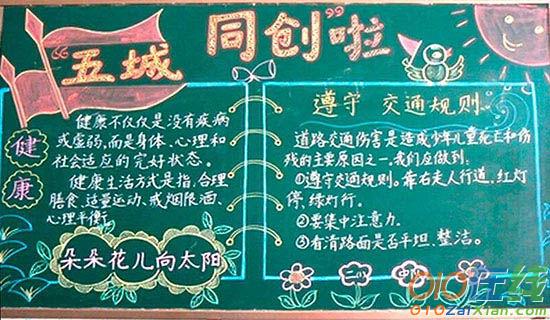 “五城同创”啦
健康
健康不仅仅是没有疾病
或虚弱,而是身体、心理和
社会适应的完好状态。
健康生活方式是指,合理
膳食、适量运动、戒烟限酒、
心理平衡
朵朵花儿向太阳
遵守 交通规则。
道路交通伤害是造成少年儿童死亡和伤
残的主要原因之一,我们应做到:
①遵守交通规则。靠右走人行道,红灯
停,绿灯行。
②要集中注意力。
③看清路面是否平坦、整洁。
010在线
010zaixian.com